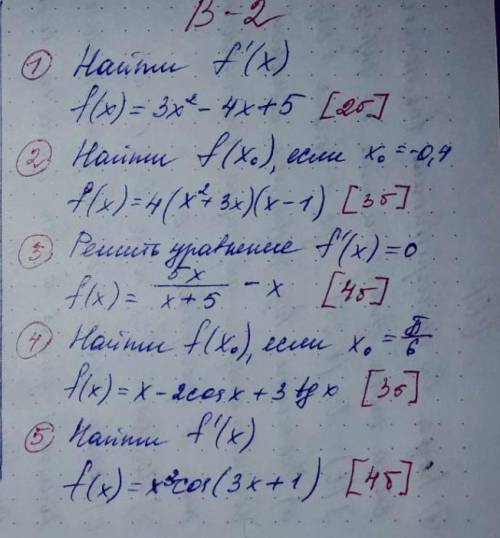 В-2
① Найти f'(x)
f(x) = 3x² - 4x + 5 [2б]
② Найти f(x₀), если x₀ = -0,4
f(x) = 4(x² + 3x)(x - 1) [3б]
③ Решить уравнение f'(x) = 0
f(x) = 5x / (x + 5) - x [4б]
④ Найти f(x₀), если x₀ = π/6
f(x) = x - 2cos x + 3 tg x [3б]
⑤ Найти f'(x)
f(x) = x³cos(3x + 1) [4б]